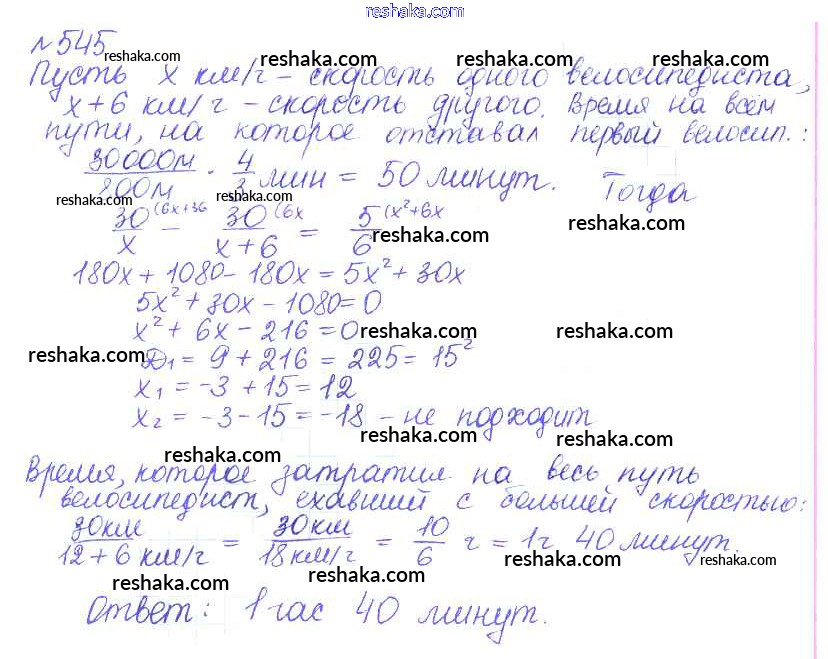 reshaka.com
№545
reshaka.com reshaka.com reshaka.com
Пусть x км/ч – скорость одного велосипедиста,
x+6 км/ч – скорость другого. Время на всём
reshaka.com reshaka.com reshaka.com
пути, на которое отставал первый велосип.:
30000м/800м · 4/3 мин = 50 минут. Тогда
reshaka.com reshaka.com
30/x (6x+36 – 30/x+6 (6x = 5/6 (x²+6x
reshaka.com reshaka.com
180x + 1080 – 180x = 5x² + 30x
5x² + 30x – 1080 = 0
x² + 6x – 216 = 0
reshaka.com reshaka.com reshaka.com
D₁ = 9 + 216 = 225 = 15²
x₁ = –3 + 15 = 12
x₂ = –3 – 15 = –18 – не подходит
reshaka.com reshaka.com reshaka.com
Время, которое затратил на весь путь
велосипедист, ехавший с большей скоростью:
reshaka.com reshaka.com
30км/12+6 км/ч = 30км/18км/ч = 10/6 ч = 1ч 40 минут.
reshaka.com reshaka.com reshaka.com
Ответ: 1 час 40 минут.
reshaka.com reshaka.com